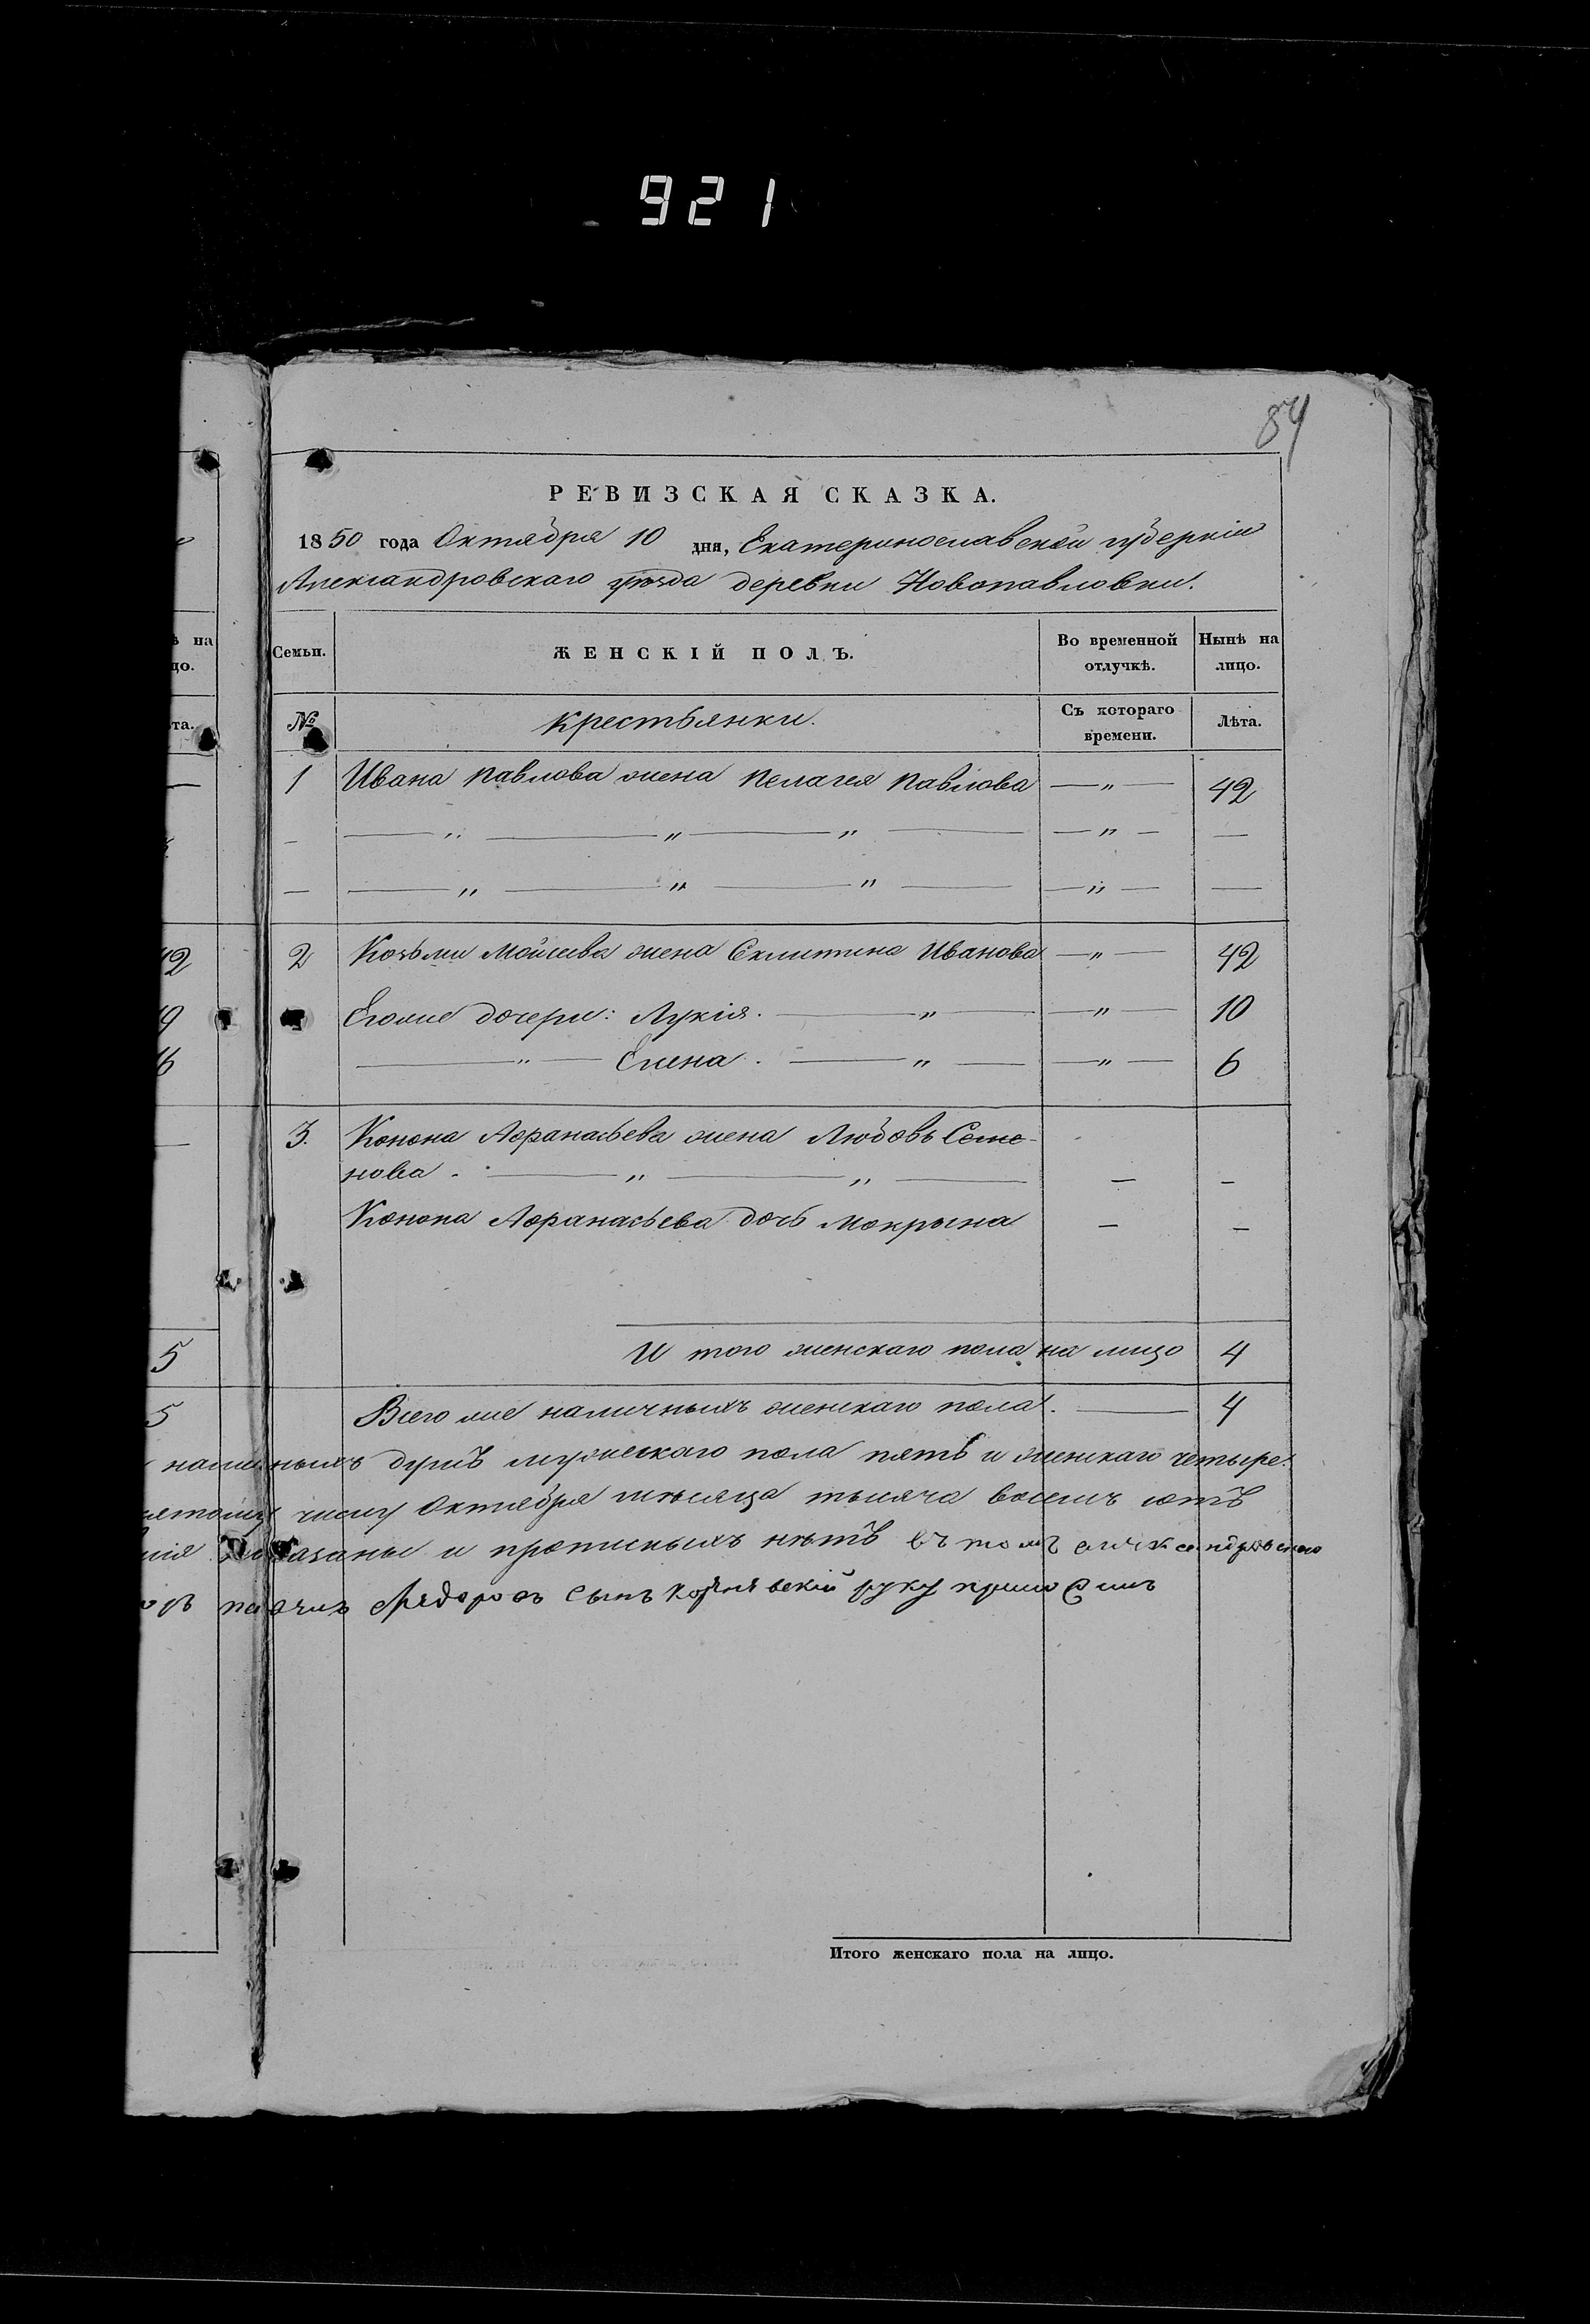 921
84
РЕВИЗСКАЯ СКАЗКА.
1850 года Октября 10 дня, Екатеринославской губерніи
Александровскаго уѣзда деревни Новопавловки.
ѣ на
цо.
Семьи.
ЖЕНСКІЙ ПОЛЪ.
Во временной отлучкѣ.
Нынѣ на лицо.
та.
№
Крестьянки.
Съ котораго времени.
Лѣта.
1 Ивана Павлова жена Пелагея Павлова — " — 42
— — " — " — " — — " — —
— — " — " — " — — " — —
2 Козьмы Мойсеева жена Еклитина Иванова — " — 42
9 Егоже дочери: Лукія. — " — — " — 10
6 — " — Елена. — " — — " — 6
3. Конона Афанасьева жена Любовь Семе-
нова. — " — " — — —
Конона Афанасьева дочь Мокрына — —
5 И того женскаго пола на лицо 4
5 Всего же наличныхъ женскаго пола. — 4
наличныхъ душъ мужескаго пола пять и женскаго четыре.
числу Октября мѣсяца тысяча восемь сотъ
показаны и прописныхъ нѣтъ въ томъ александровскаго
Федоровъ сынъ руку приложилъ
Итого женскаго пола на лицо.